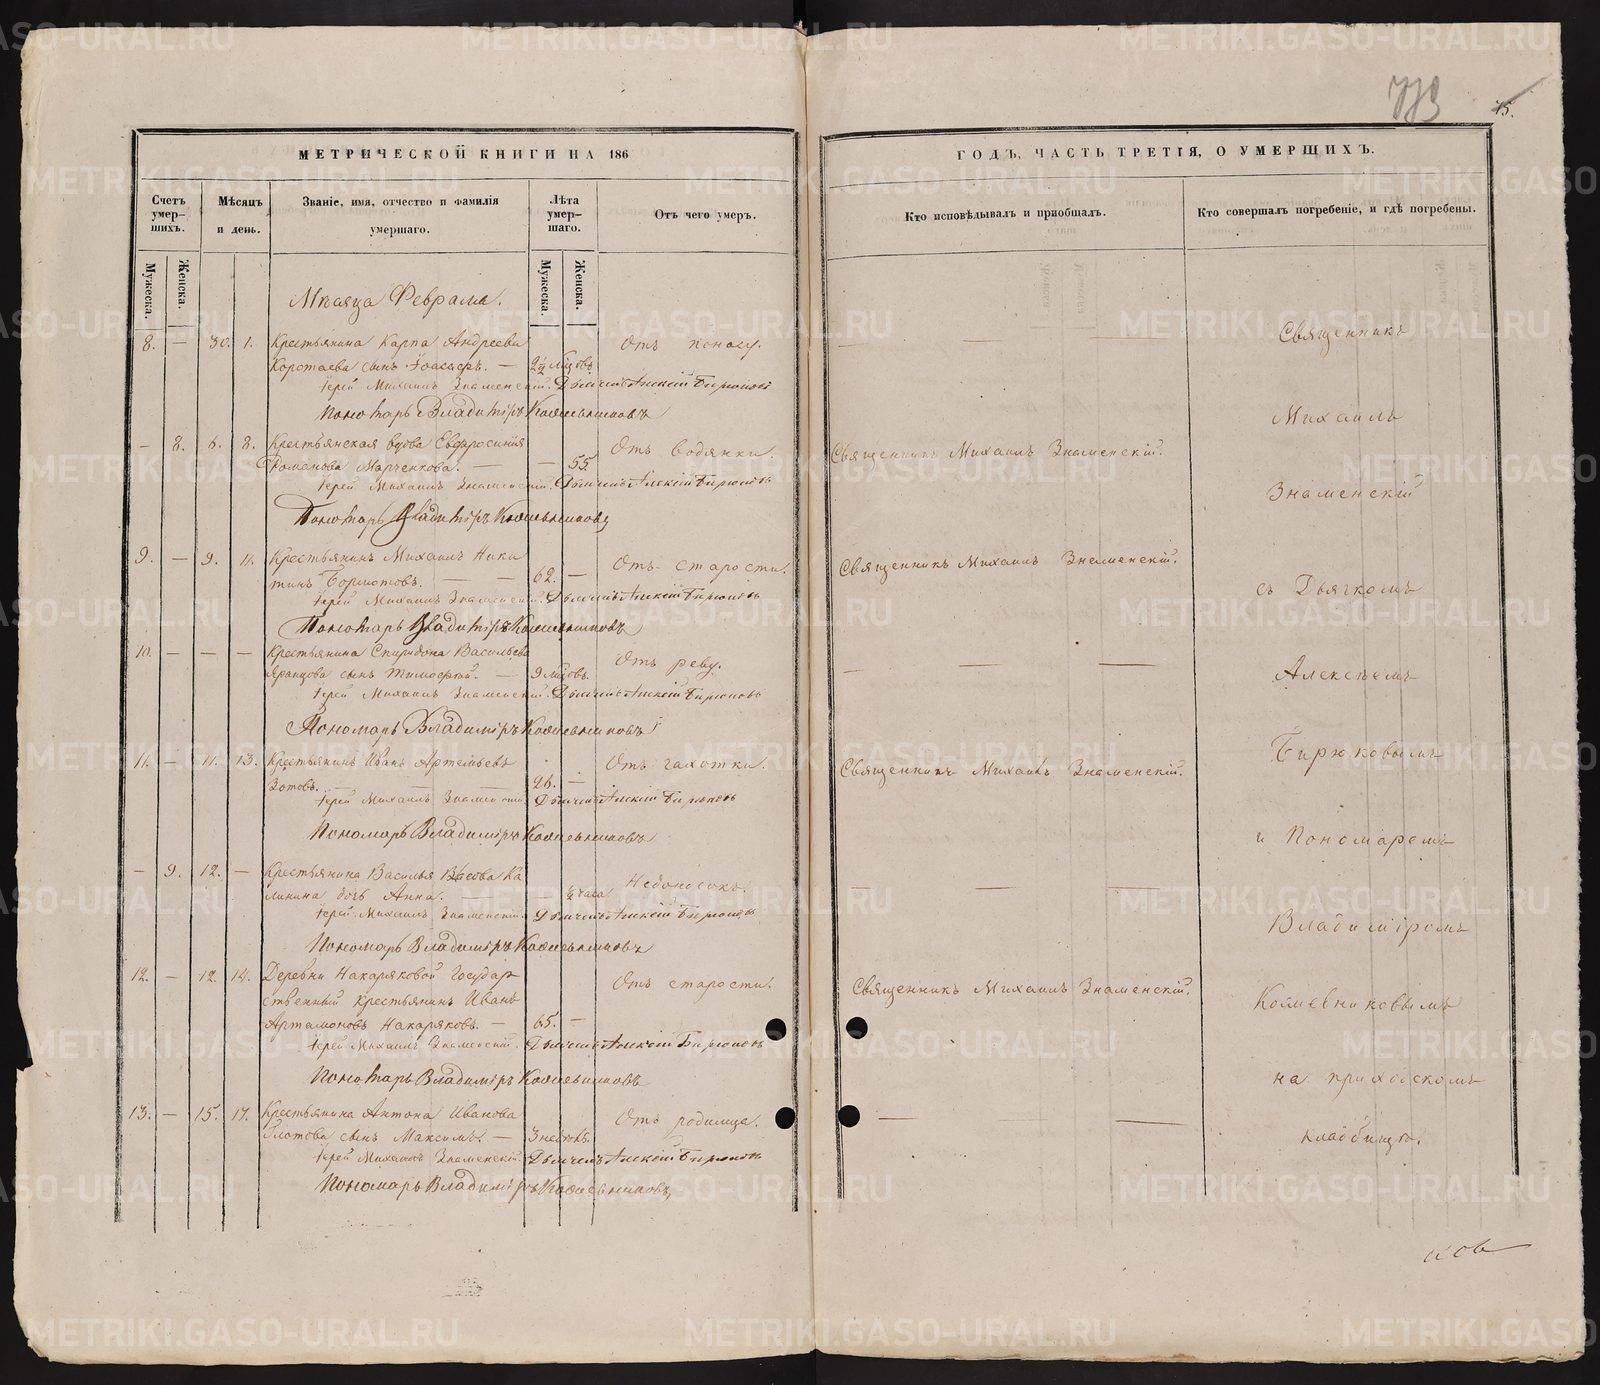 773
15.
МЕТРИЧЕСКОЙ КНИГИ НА 186
ГОДЪ, ЧАСТЬ ТРЕТІЯ, О УМЕРШИХЪ.
Счетъ умер-
шихъ.
Мѣсяцъ
и день.
Званіе, имя, отчество и фамилія
умершаго.
Лѣта
умер-
шаго.
Отъ чего умеръ.
Кто исповѣдывалъ и пріобщалъ.
Кто совершалъ погребеніе, и гдѣ погребены.
Мужеска.
Женска.
Мужеска.
Женска.
Мѣсяца Февраля.
8. — 30. 1. Крестьянина Карпа Андреева
Коротаева сынъ — Отъ поносу.
Іерей Михаилъ Знаменскій. Дьячекъ Алексій Бирюковъ
Пономарь Владиміръ Кожевниковъ
— 8. 6. 8. Крестьянская вдова Евфросинія
Романова Марченкова. — — 55. Отъ водянки. Священникъ Михаилъ Знаменскій.
Іерей Михаилъ Знаменскій. Дьячекъ Алексій Бирюковъ
Пономарь Владиміръ Кожевниковъ
9. — 9. 11. Крестьянинъ Михаилъ Ники
тинъ Бормотовъ. — — 62. — Отъ старости. Священникъ Михаилъ Знаменскій.
Іерей Михаилъ Знаменскій. Дьячекъ Алексій Бирюковъ
Пономарь Владиміръ Кожевниковъ
10. — — — Крестьянина Спиридона Васильева
сынъ Тимофей. — 9 мѣсяцовъ. Отъ реву.
Іерей Михаилъ Знаменскій. Дьячекъ Алексій Бирюковъ
Пономарь Владиміръ Кожевниковъ
11. — 11. 13. Крестьянинъ Иванъ Артемьевъ
Зотовъ. — 26. — Отъ чахотки. Священникъ Михаилъ Знаменскій.
Іерей Михаилъ Знаменскій Дьячекъ Алексій Бирюковъ
Пономарь Владиміръ Кожевниковъ
— 9. 12. — Крестьянина Василья Ка
линина дочь Анна. — — часа Недоносокъ.
Іерей Михаилъ Знаменскій. Дьячекъ Алексій Бирюковъ
Пономарь Владиміръ Кожевниковъ
12. — 12. 14. Деревни Накаряковой Государ
ственный крестьянинъ Иванъ
Артамоновъ Накаряковъ. — 65. — Отъ старости. Священникъ Михаилъ Знаменскій.
Іерей Михаилъ Знаменскій. Дьячекъ Алексій Бирюковъ
Пономарь Владиміръ Кожевниковъ
13. — 15. 17. Крестьянина Антона Иванова
сынъ Максимъ. — 3 недѣль. Отъ родимца.
Іерей Михаилъ Знаменскій Дьячекъ Алексій Бирюковъ
Пономарь Владиміръ Кожевниковъ
Священникъ
Михаилъ
Знаменскій
съ Дьячкомъ
Алексѣемъ
Бирюковымъ
и Пономаремъ
Владиміромъ
Кожевниковымъ
на приходскомъ
кладбищѣ.
METRIKI.GASO-URAL.RU